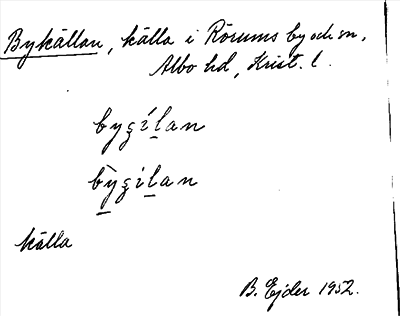 Bykällan, källa i Rörums by och sn,
Albo hd, Krist. l.
bygílan
bỳgilan
källa
B. Ejder 1952.